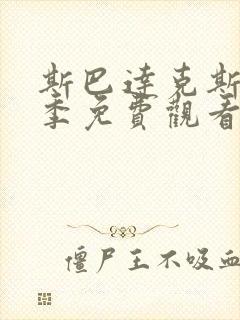 斯巴達克斯
季免費觀看
僵尸王不吸血